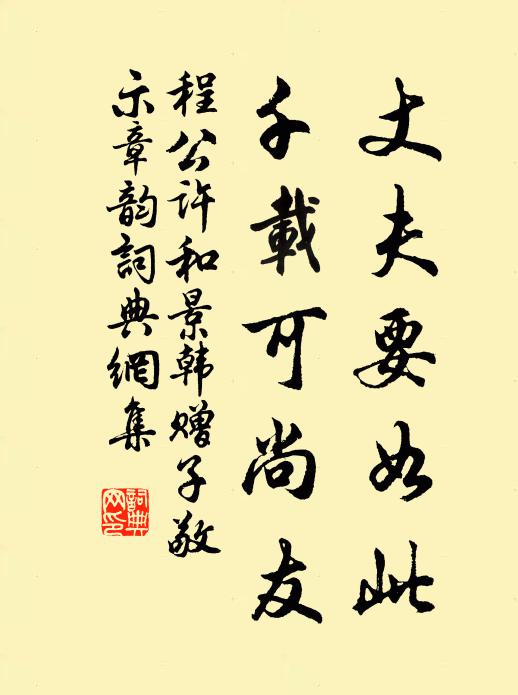 丈夫要如此
千載可尚友
程公许和景韩赠子敬
示章韵詞典網集
詞典网印